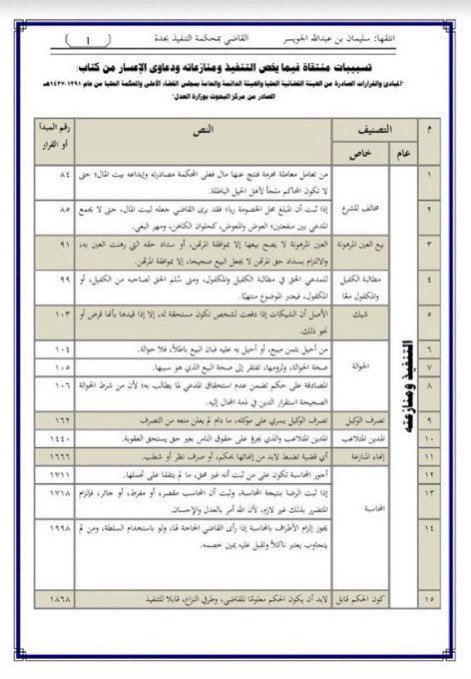 انتقها: سليمان بن عبدالله الجويسر القاضي بمحكمة التنفيذ بجدة ( 1 )
تسبيبات منتقاة فيما يخص التنفيذ ومنازعاته ودعاوى الإعسار من كتاب:
"المبادئ والقرارات الصادرة من الهيئة القضائية العليا والهيئة الدائمة والعامة بمجلس القضاء الأعلى والمحكمة العليا من عام ١٣٩١-١٤٣٧هـ
الصادر عن مركز البحوث بوزارة العدل"
م التصنيف النص رقم المبدأ
عام خاص أو القرار
التنفيذ ومنازعاته
١ مخالف للشرع من تعامل معاملة محرمة فنتج عنها مال فعلى المحكمة مصادرته وإيداعه بيت المال؛ حتى ٨٤
لا تكون المحاكم ملجأ لأهل الحيل الباطلة.
٢ إذا ثبت أن المبلغ محل الخصومة ربا؛ فقد يرى القاضي جعله لبيت المال، حتى لا يجمع ٨٥
المدعي بين منفعتين؛ العوض والمعوض، كحلوان الكاهن، ومهر البغي.
٣ بيع العين المرهونة العين المرهونة لا يصح بيعها إلا بموافقة المرتهن، أو سداد حقه التي رهنت العين به، ٩١
والالتزام بسداد حق المرتهن لا يجعل البيع صحيحا، إلا بموافقة المرتهن.
٤ مطالبة الكفيل للمدعي الحق في مطالبة الكفيل والمكفول، ومتى سُلم الحق لصاحبه من الكفيل، أو ٩٩
والمكفول معًا المكفول، فيعتبر الموضوع منتهيًا.
٥ شيك الأصل أن الشيكات إذا دفعت لشخص تكون مستحقة له، إلا إذا قيدها بأنها قرض أو ١٠٣
نحو ذلك.
٦ الحوالة من أحيل بثمن مبيع، أو أحيل به عليه فبان البيع باطلاً، فلا حوالة. ١٠٤
٧ صحة الحوالة، ولزومها، تفتقر إلى صحة البيع الذي هو سببها. ١٠٥
٨ المصادقة على حكم تضمن عدم استحقاق المدعي لما يطالب به؛ لأن من شرط الحوالة ١٠٦
الصحيحة استقرار الدين في ذمة المحال إليه.
٩ تصرف الوكيل تصرف الوكيل يسري على موكله، ما دام لم يعلن منعه من التصرف ١٦٢
١٠ المدين المتلاعب المدين المتلاعب والذي يجرؤ على حقوق الناس بغير حق يستحق العقوبة. ١٤٤٠
١١ إنهاء المنازعة أي قضية تضبط لابد من إنهائها بحكم، أو صرف نظر أو شطب. ١٦٦٦
١٢ المحاسبة أجور المحاسبة تكون على من ثبت أنه غير محق، ما لم يتفقا على تحملها. ١٧١١
١٣ إذا ثبت الرضا بنتيجة المحاسبة، وثبت أن المحاسب مقصر، أو مفرط، أو جائر، فإلزام ١٧١٨
المتضرر بذلك غير لازم، لأن الله أمر بالعدل والإحسان.
١٤ يجوز إلزام الأطراف بالمحاسبة إذا رأى القاضي الحاجة لها، ولو باستخدام السلطة، ومن لم ١٩٩٨
يتجاوب يعتبر ناكلاً وتقبل عليه يمين خصمه.
١٥ كون الحكم قابل لابد أن يكون الحكم معلومًا للقاضي، وطرفي النزاع، قابلا للتنفيذ ١٨٦٨